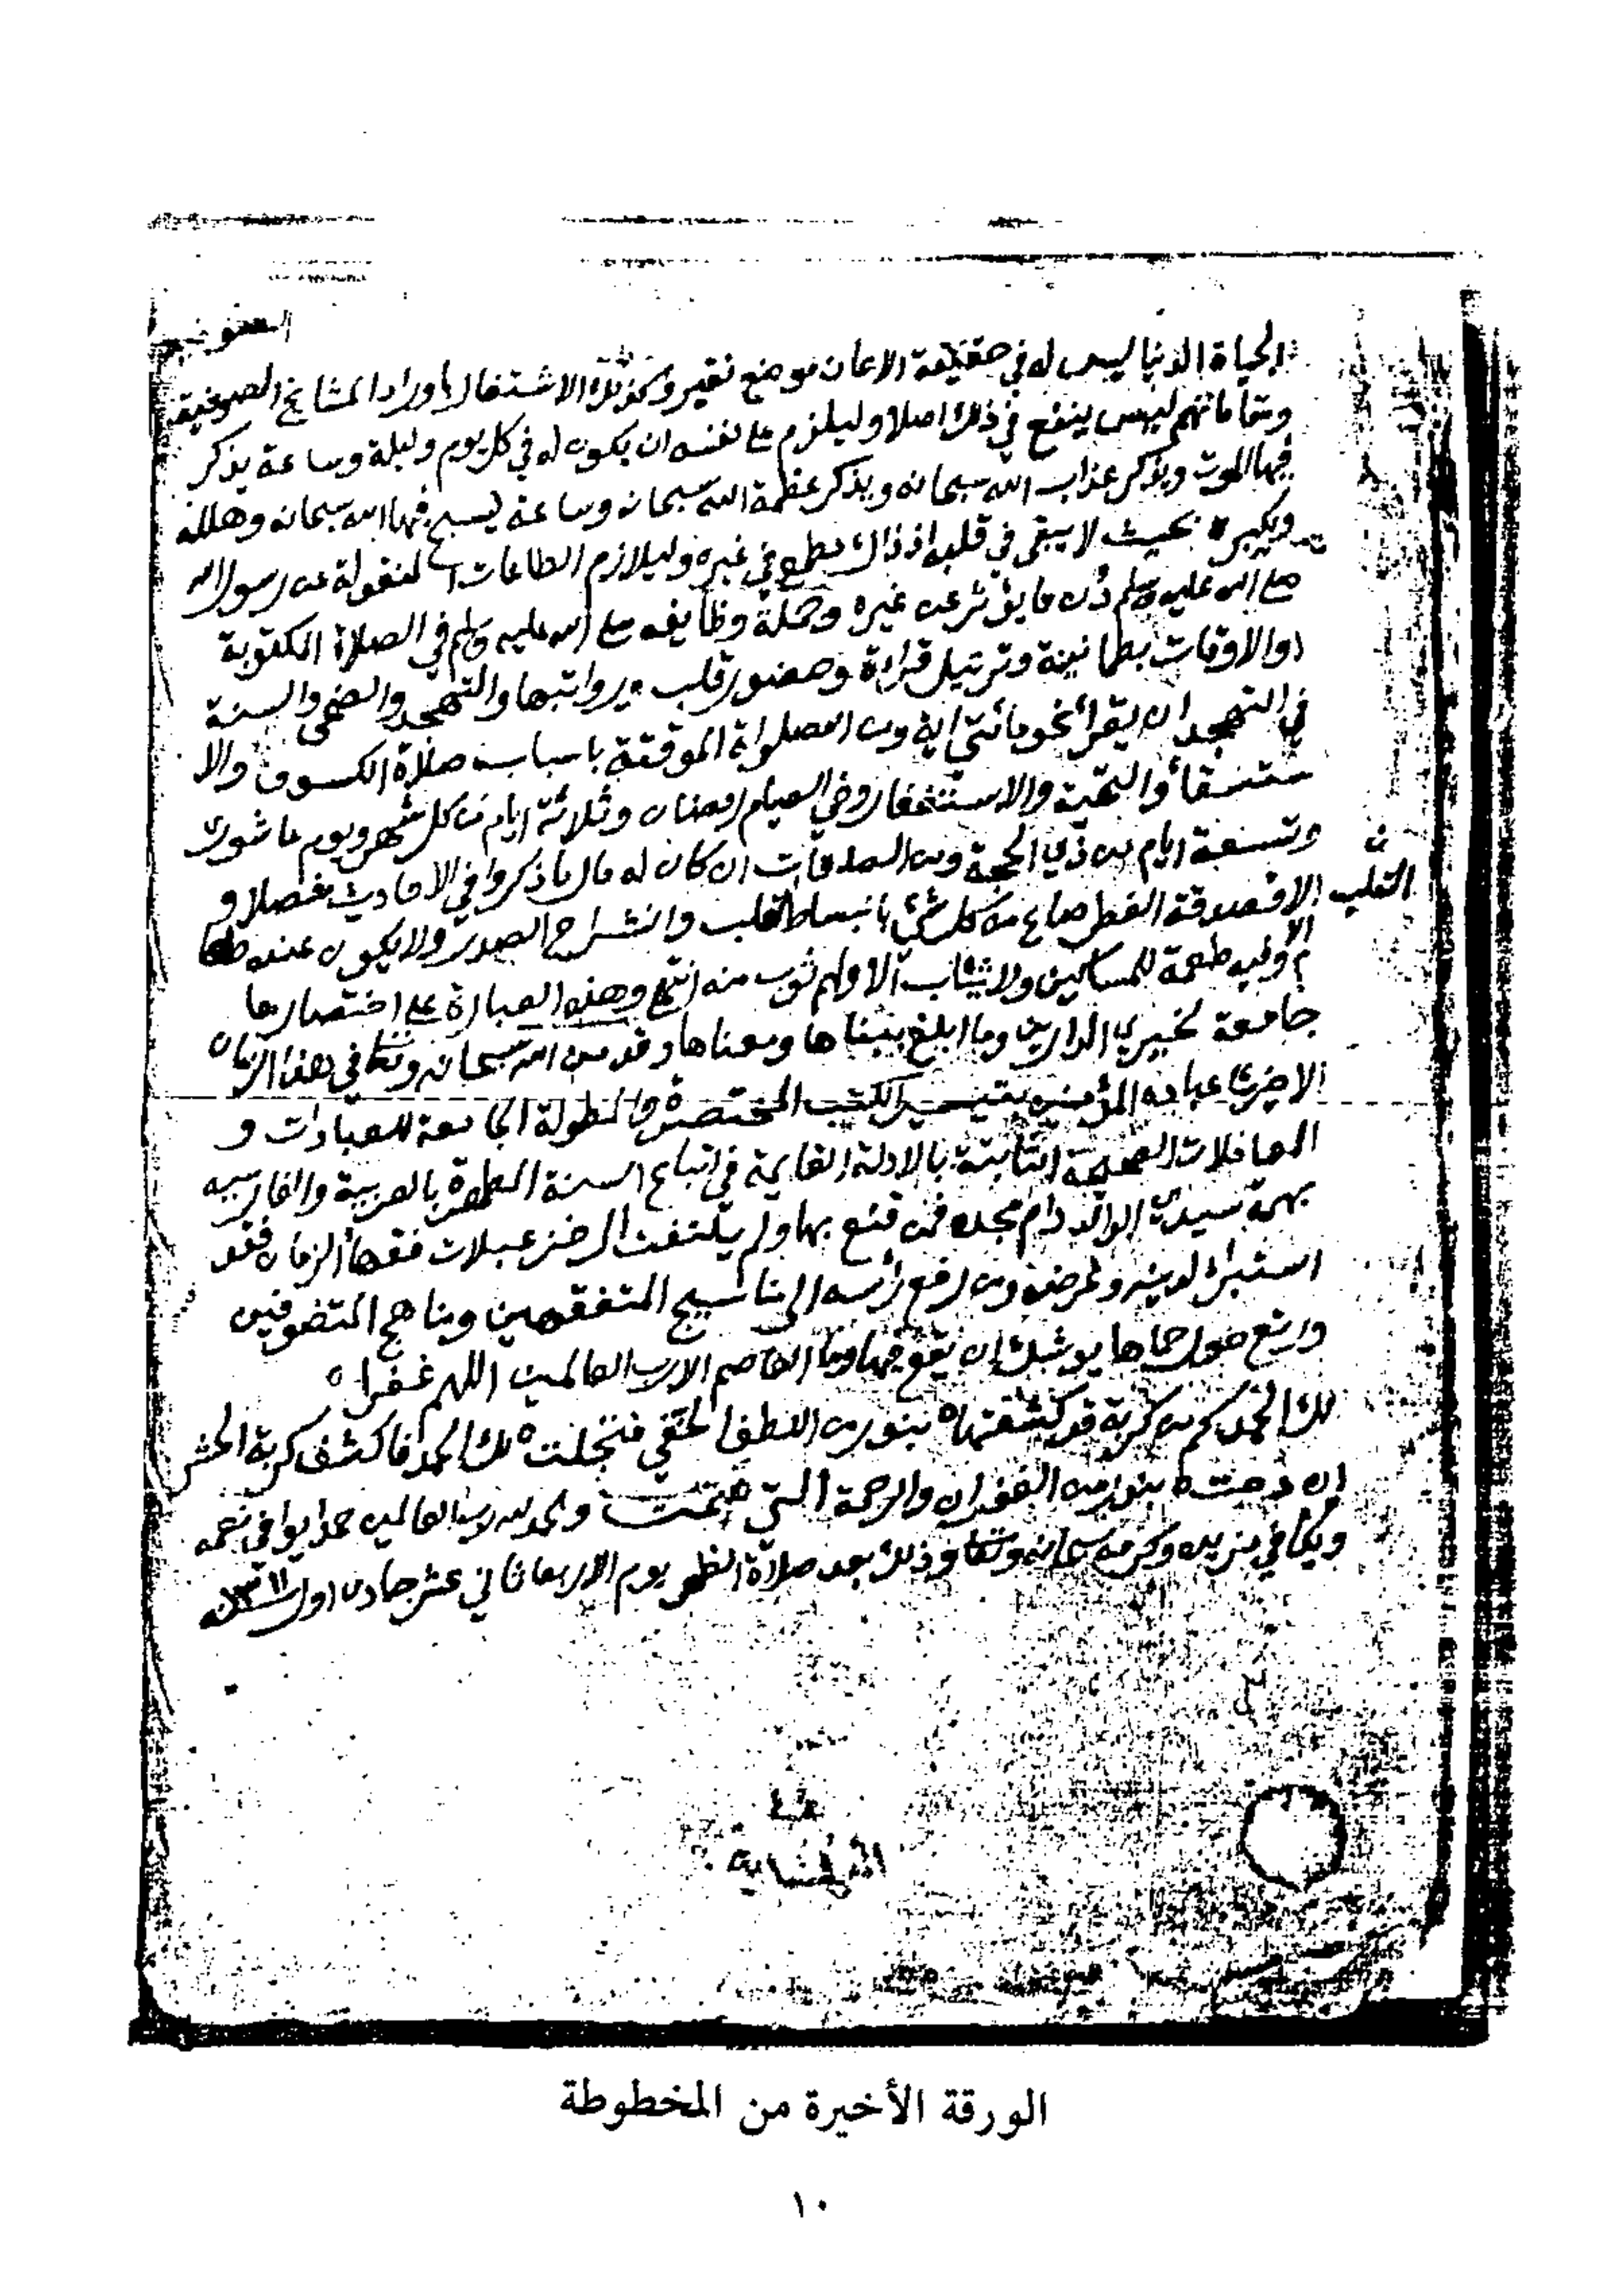 الحياة الدنيا ليس له في حقيقة الايمان موضع نقير وكذلك الاشتغال باوراد المشايخ الصوفية
ومقاماتهم ليس ينفع في ذلك اصلا وليلزم على نفسه ان يكون له في كل يوم وليلة وساعة يذكر
فيها الموت ويذكر عذاب الله سبحانه ويذكر عظمة الله سبحانه وساعة يسبح فيها الله سبحانه وهلله
ويكبره بحيث لا يبقى في قلبه اذ ذاك مطمع في غيره وليلازم الطاعات المنقولة عن رسول الله
صلى الله عليه وسلم دون ما يؤثر عن غيره وجملة وظايفه صلى الله عليه وسلم في الصلاة المكتوبة
والاوقات بطمانينة وترتيل قراءة وحضور قلب ورواتبها والتهجد والضحى والسنة
في التهجد ان يقرأ نحو مائتي اية ومن الصلواة الموقتة باسباب صلاة الكسوف والا
ستسقأ والتحية والاستغفار وفي الصيام رمضان وثلاثة ايام من كل شهر ويوم عاشورا
وتسعة ايام من ذي الحجة ومن الصدقات ان كان له مال ما ذكروا في الاحاديث مفصلا و
الا فصدقة الفطر صاع من كل شئ بانبساط القلب وانشراح الصدر ولا يكون عنده طعا
القلب
م الا وفيه طعمة للمساكين ولا ثياب الا ولهم ثوب منه انتهى وهذه العبارة على اختصارها
جامعة لخيري الدارين وما ابلغ مبناها ومعناها وقد من الله سبحانه وتعالى في هذا الزمان
الاخير على عباده المؤمنين بتيسير الكتب المختصرة والمطولة الجامعة للعبادات و
المعاملات الصحيحة الثابتة بالادلة القايمة في اتباع السنة المطهرة بالعربية والفارسيه
بهمة سيدي الوالد دام مجده فمن قنع بها ولم يلتفت الى خزعبلات فقهأ الزمان فقد
استبرأ لدينه وعرضه ومن رفع رأسه الى تناسيج المتفقهين ومناهج المتصوفين
ورتع حول حماها يوشك ان يقع فيها وما العاصم الا رب العالمين اللهم غفرا
لك الحمد كم من كربة قد كشفتها بنور من اللطف الخفي فتجلت لك الحمد فاكشف كربة الحشر
ان دجت بنور من الغفران والرحمة التي والحمد لله رب العالمين حمدا يوافي نعمه
ويكافي مزيده وكرمه سبحانه وتعالى وذلك بعد صلاة الظهر يوم الاربعا ثاني عشر جمادى اول
الورقة الأخيرة من المخطوطة
١٠